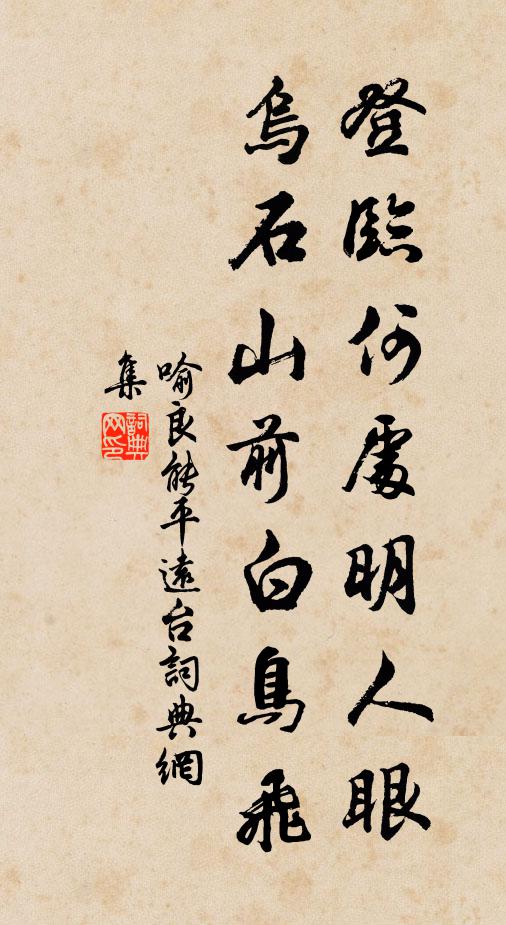 登臨何處明人眼
烏石山前白鳥飛
喻良能平遠台詞典網
集
詞典網印